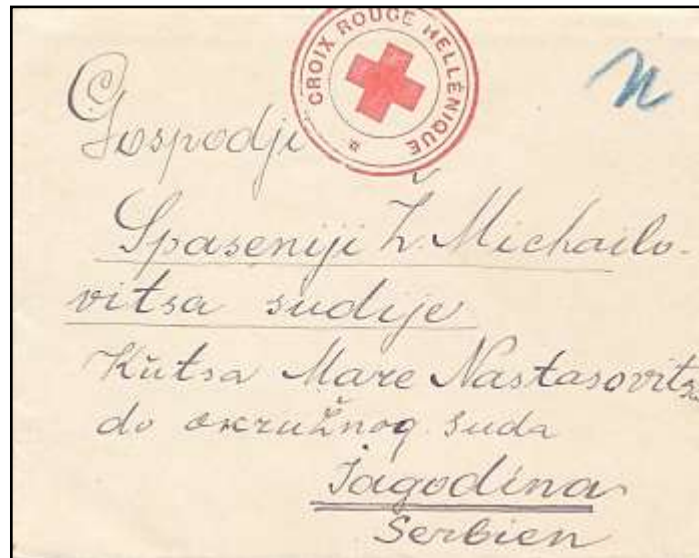 CROIX ROUGE HELLÉNIQUE
Gospodji
Spaseniji Ž. Michailo-
vitsa sudije
Kutsa Mare Nastasovitsa
do okružnog suda
Jagodina
Serbien